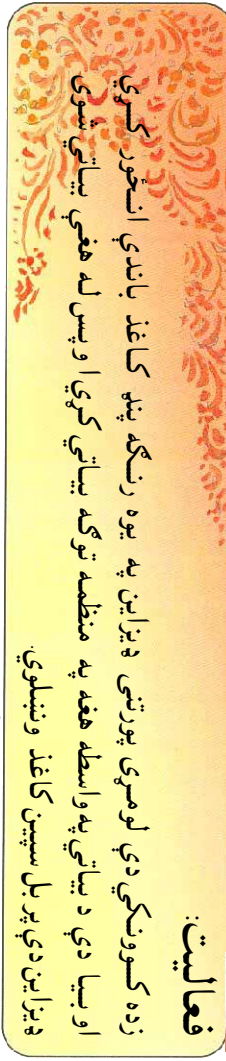 فعاليت:
زده کـــوونکي دې لومړی پورتنی ډيزاين په يوه رنګه پنډ کاغذ باندې انځور کـړي
او بيا دې د بياتي په واسطه هغه په منظمه توګه بياتي کړي ا و پس له هغې بياتي شوي
ډيزاين دې پر بل سپين کاغذ ونښلوي.